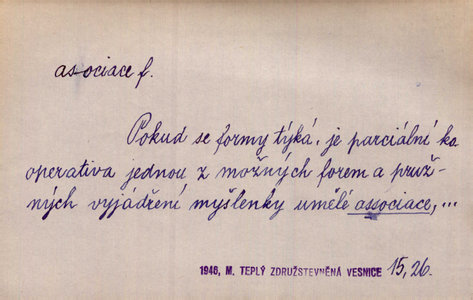 asociace f.
Pokud se formy týká, je parciální ko
operativa jednou z možných forem a pruž-
ných vyjádření myšlenky umělé associace,...
1946, M. TEPLÝ ZDRUŽSTEVNĚNÁ VESNICE 15,26.